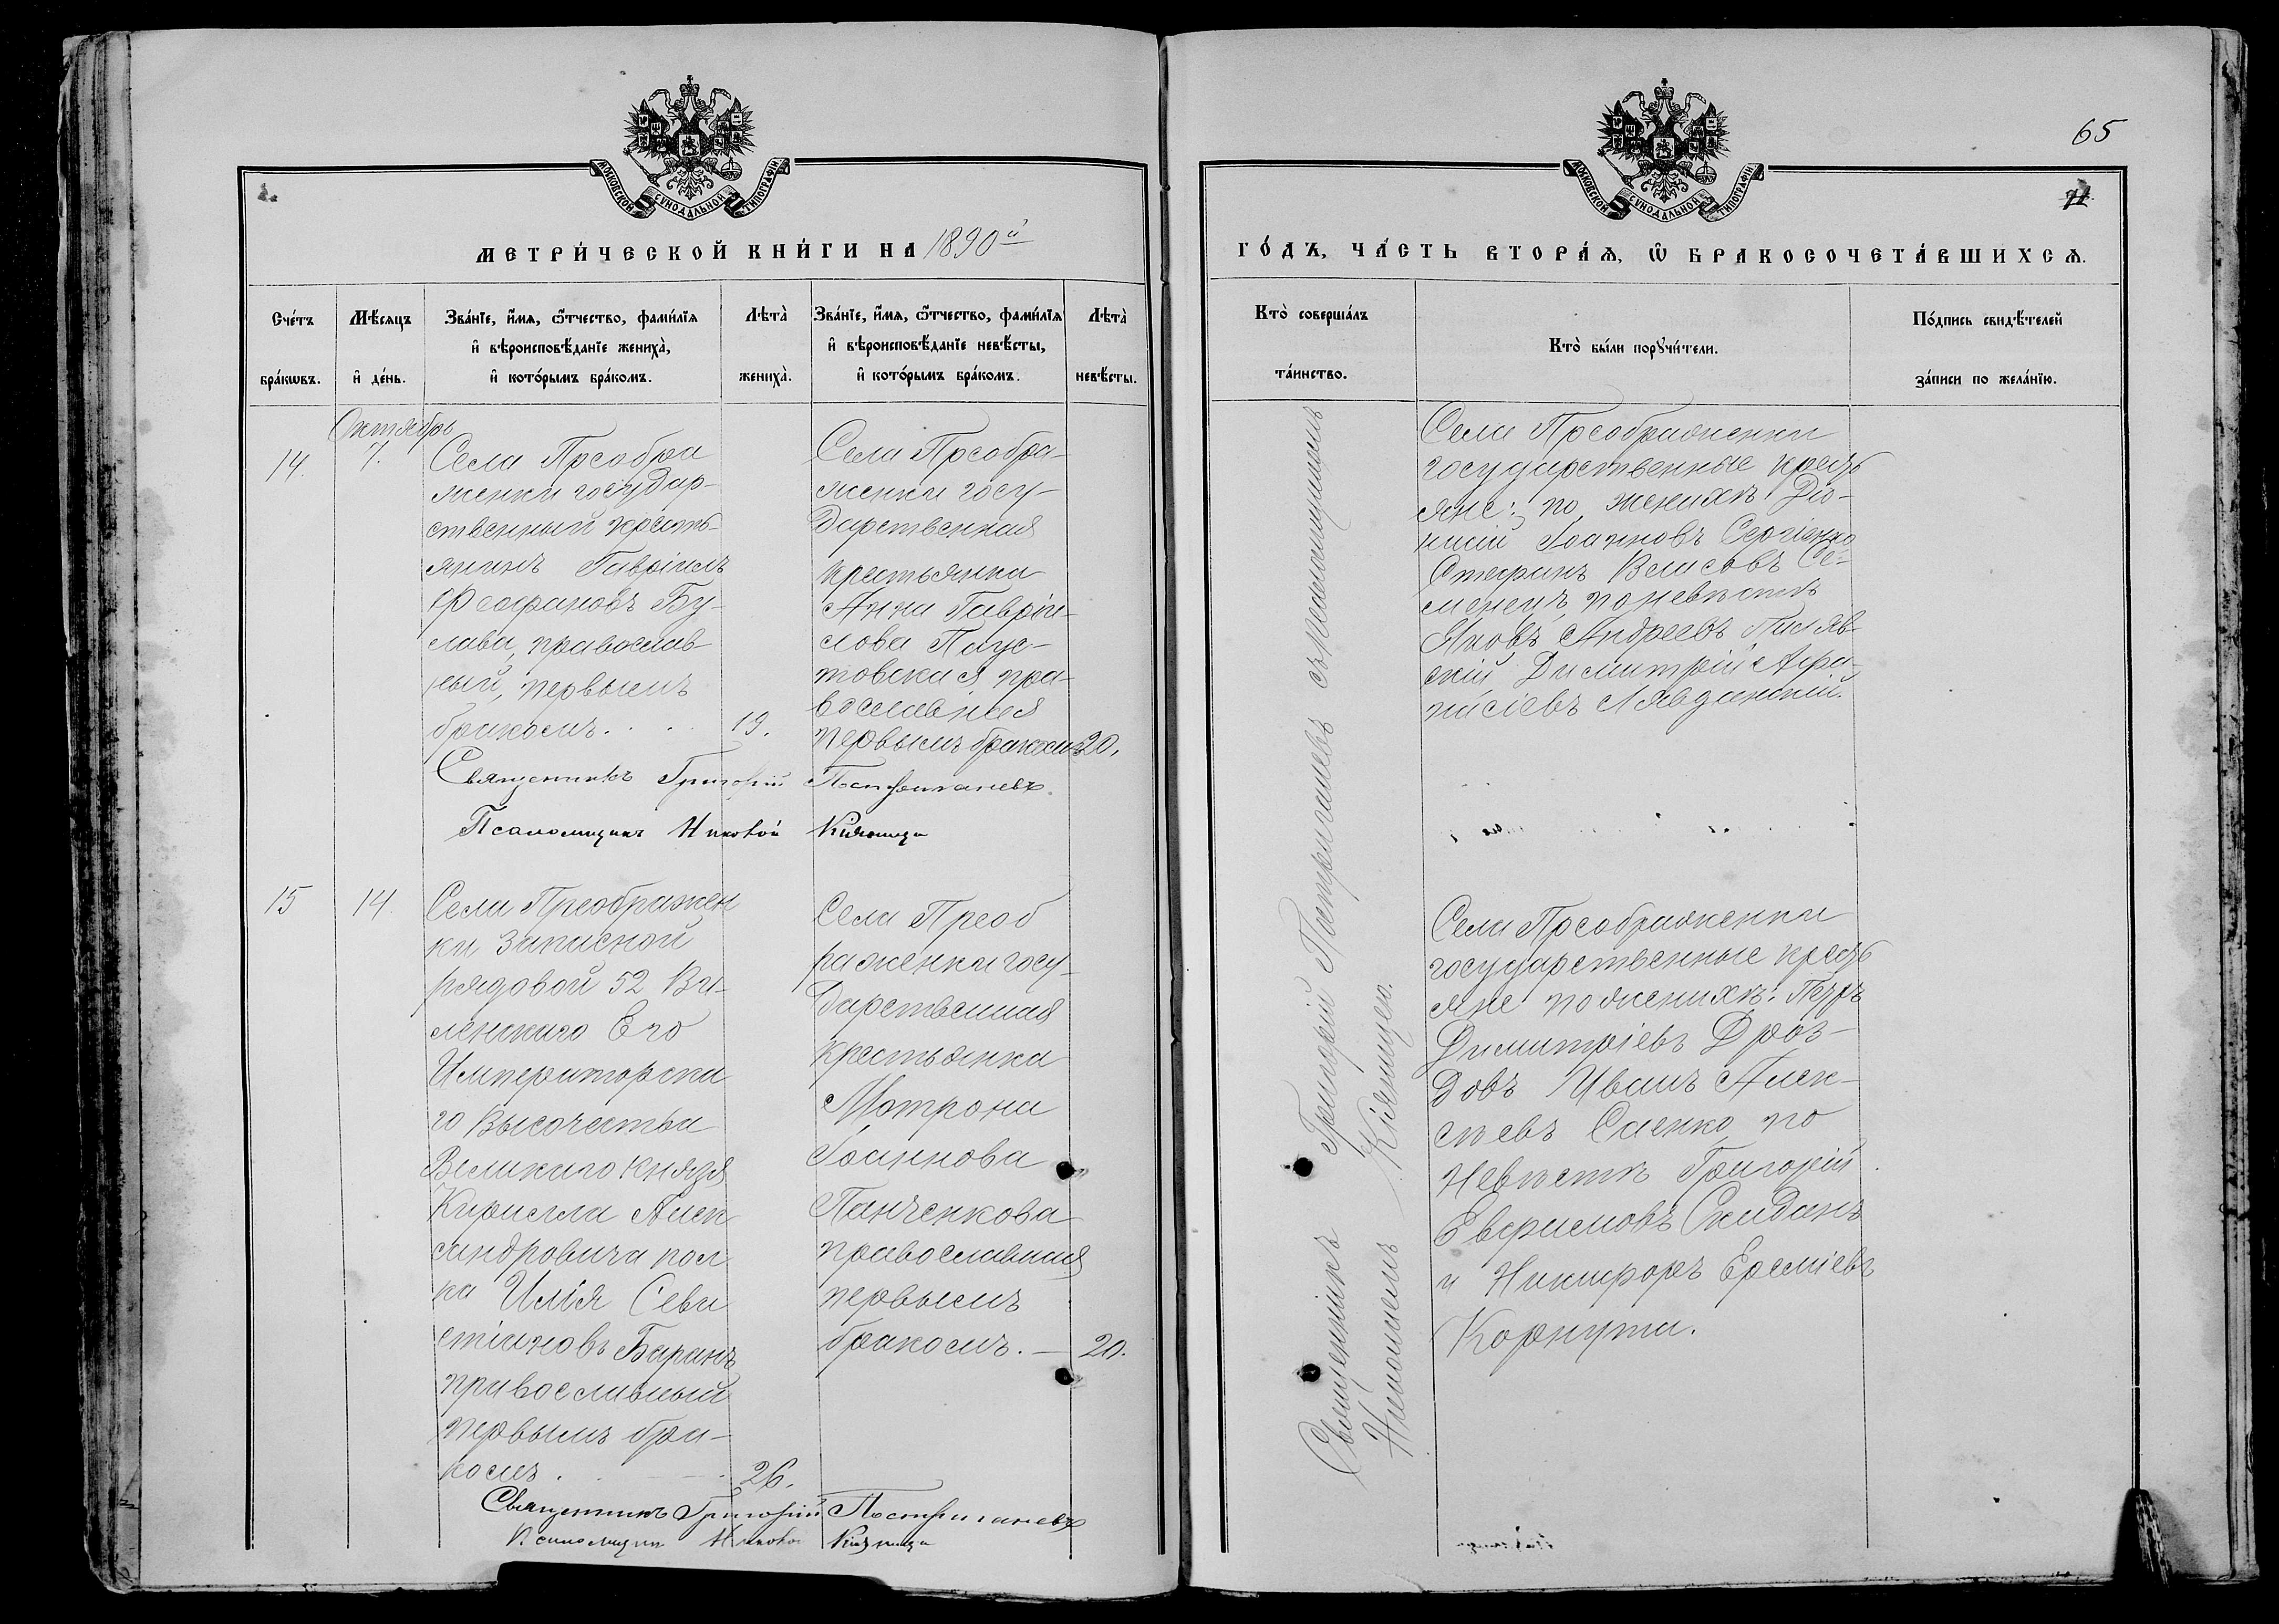 МОСКОВСКОЙ СѴНОДАЛЬНОЙ ТИПОГРАФІИ
МЕТРИ́ЧЕСКОЙ КНИ́ГИ НА 1890й
Сче́тъ бра́кѡвъ.
Мѣ́сяцъ и҆ де́нь.
Зва́нїе, и҆́мѧ, ѻ҆́тчество, фами́лїѧ
и҆ вѣроисповѣ́данїе жениха̀,
и҆ кото́рымъ бра́комъ.
Лѣта̀ жениха̀.
Зва́нїе, и҆́мѧ, ѻ҆́тчество, фами́лїѧ
и҆ вѣроисповѣ́данїе невѣ́сты,
и҆ кото́рымъ бра́комъ.
Лѣта̀ невѣ́сты.
Октябрь
14.
7.
Села Преобра
женки государ-
ственный кресть-
янинъ Гавріилъ
Феофановъ Бу-
лава, православ-
ный, первымъ
бракомъ. . . . 19.
Села Преобра-
женки госу-
дарственная
крестьянка
Анна Гаврії-
лова Паус-
товская пра-
вославная
первымъ бракомъ 20.
Священникъ Григорій Постриганевъ
Псаломщикъ Никоной Кіяница
15
14.
Села Преображен
ки запасной
рядовой 52 Ви-
ленскаго Его
Императорска
го Высочества
Великаго Князя
Кирилла Алек
сандровича пол
ка Илія Сева
стіановъ Баранъ
православный
первымъ бра-
комъ . 26.
Села Преоб
раженки госу-
дарственная
крестьянка
Матрона
Іоаннова
Панченкова
православная
первымъ
бракомъ. — 20.
Священникъ Григорій Постриганевъ
Псаломщикъ Кіяница
65
МОСКОВСКОЙ СѴНОДАЛЬНОЙ ТИПОГРАФІИ
ГО́ДЪ, ЧА́СТЬ ВТОРА́Ѧ, Ѽ БРАКОСОЧЕТА́ВШИХСѦ.
Кто̀ соверша́лъ
та́инство.
Кто̀ бы́ли порꙋчи́тели.
По́дпись свидѣ́телей
за́писи по жела́нїю.
Священникъ Григорій Постриганевъ съ псаломщикомъ
Кіяницею.
Села Преображенки
государственные кресть
яне: по женихѣ Діо-
нисій Іоанновъ Сергіенко
Стефанъ Се-
менецъ, по невѣстѣ
Яковъ Андреевъ Пиляв-
скій Димитрій Афа-
насіевъ Лявданскій.
Села Преображенки
государственные кресть
яне по женихѣ: Петръ
Димитріевъ Дроз-
довъ Иванъ Алек-
сѣевъ Саенко по
невѣстѣ Григорій
Евфимовъ Скиданъ
и Никифоръ Ереміевъ
Корнута.